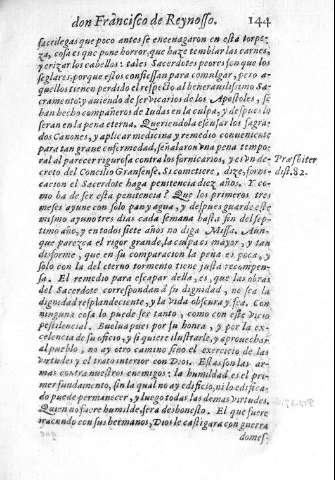 don Francisco de Reynoso. 144
sacrilegas que poco antes se encenagaron en esta torpe-
za, cosa es que pone horror, que haze temblar las carnes,
y erizar los cabellos: tales Sacerdotes peores son que los
seglares: porque estos confiessan para comulgar, pero a-
quellos tienen perdido el respecto al benerauilissimo Sa-
cramento: y auiendo de ser vicarios de los Apostoles, se
han hecho compañeros de Iudas en la culpa, y despues lo
seran en la pena eterna. Queriendola escusar los sagra-
dos Canones, y aplicar medicina y remedio conueniente
para tan graue enfermedad, señalaron vna pena tempo-
ral al parecer rigurosa contra los fornicarios, y es vn de- Præsbiter
creto del Concilio Gransense. Si cometiere, dize, forni- dist. 82.
cacion el Sacerdote haga penitencia diez años. Y co-
mo ha de ser esta penitencia? Que los primeros tres
meses ayune con solo pan y agua, y despues guarde este
mismo ayuno tres dias cada semana hasta fin del sep-
timo año, y en todos siete años no diga Missa. Aun-
que parezca el rigor grande, la culpa es mayor, y tan
disforme, que en su comparacion la pena es poca, y
solo con la del eterno tormento tiene justa recompen-
sa. El remedio para escapar della, es, que las obras
del Sacerdote correspondan à su dignidad, no sea la
dignidad resplandeciente, y la vida obscura y fea. Con
ninguna cosa lo puede ser tanto, como con este vicio
pestilencial. Buelua pues por su honra, y por la ex-
celencia de su oficio, y si quiere ilustrarle, y aprouechar
al pueblo, no ay otro camino sino el exercicio de las
virtudes y el trato interior con Dios. Estas son las ar-
mas contra nuestros enemigos: la humildad es el pri-
mer fundamento, sin la qual no ay edificio, ni lo edifica-
do puede permanecer, y luego todas las demas virtudes.
Quien no fuere humilde, sera deshonesto. El que fuere
iracundo con sus hermanos, Dios le castigara con guerra
domes-